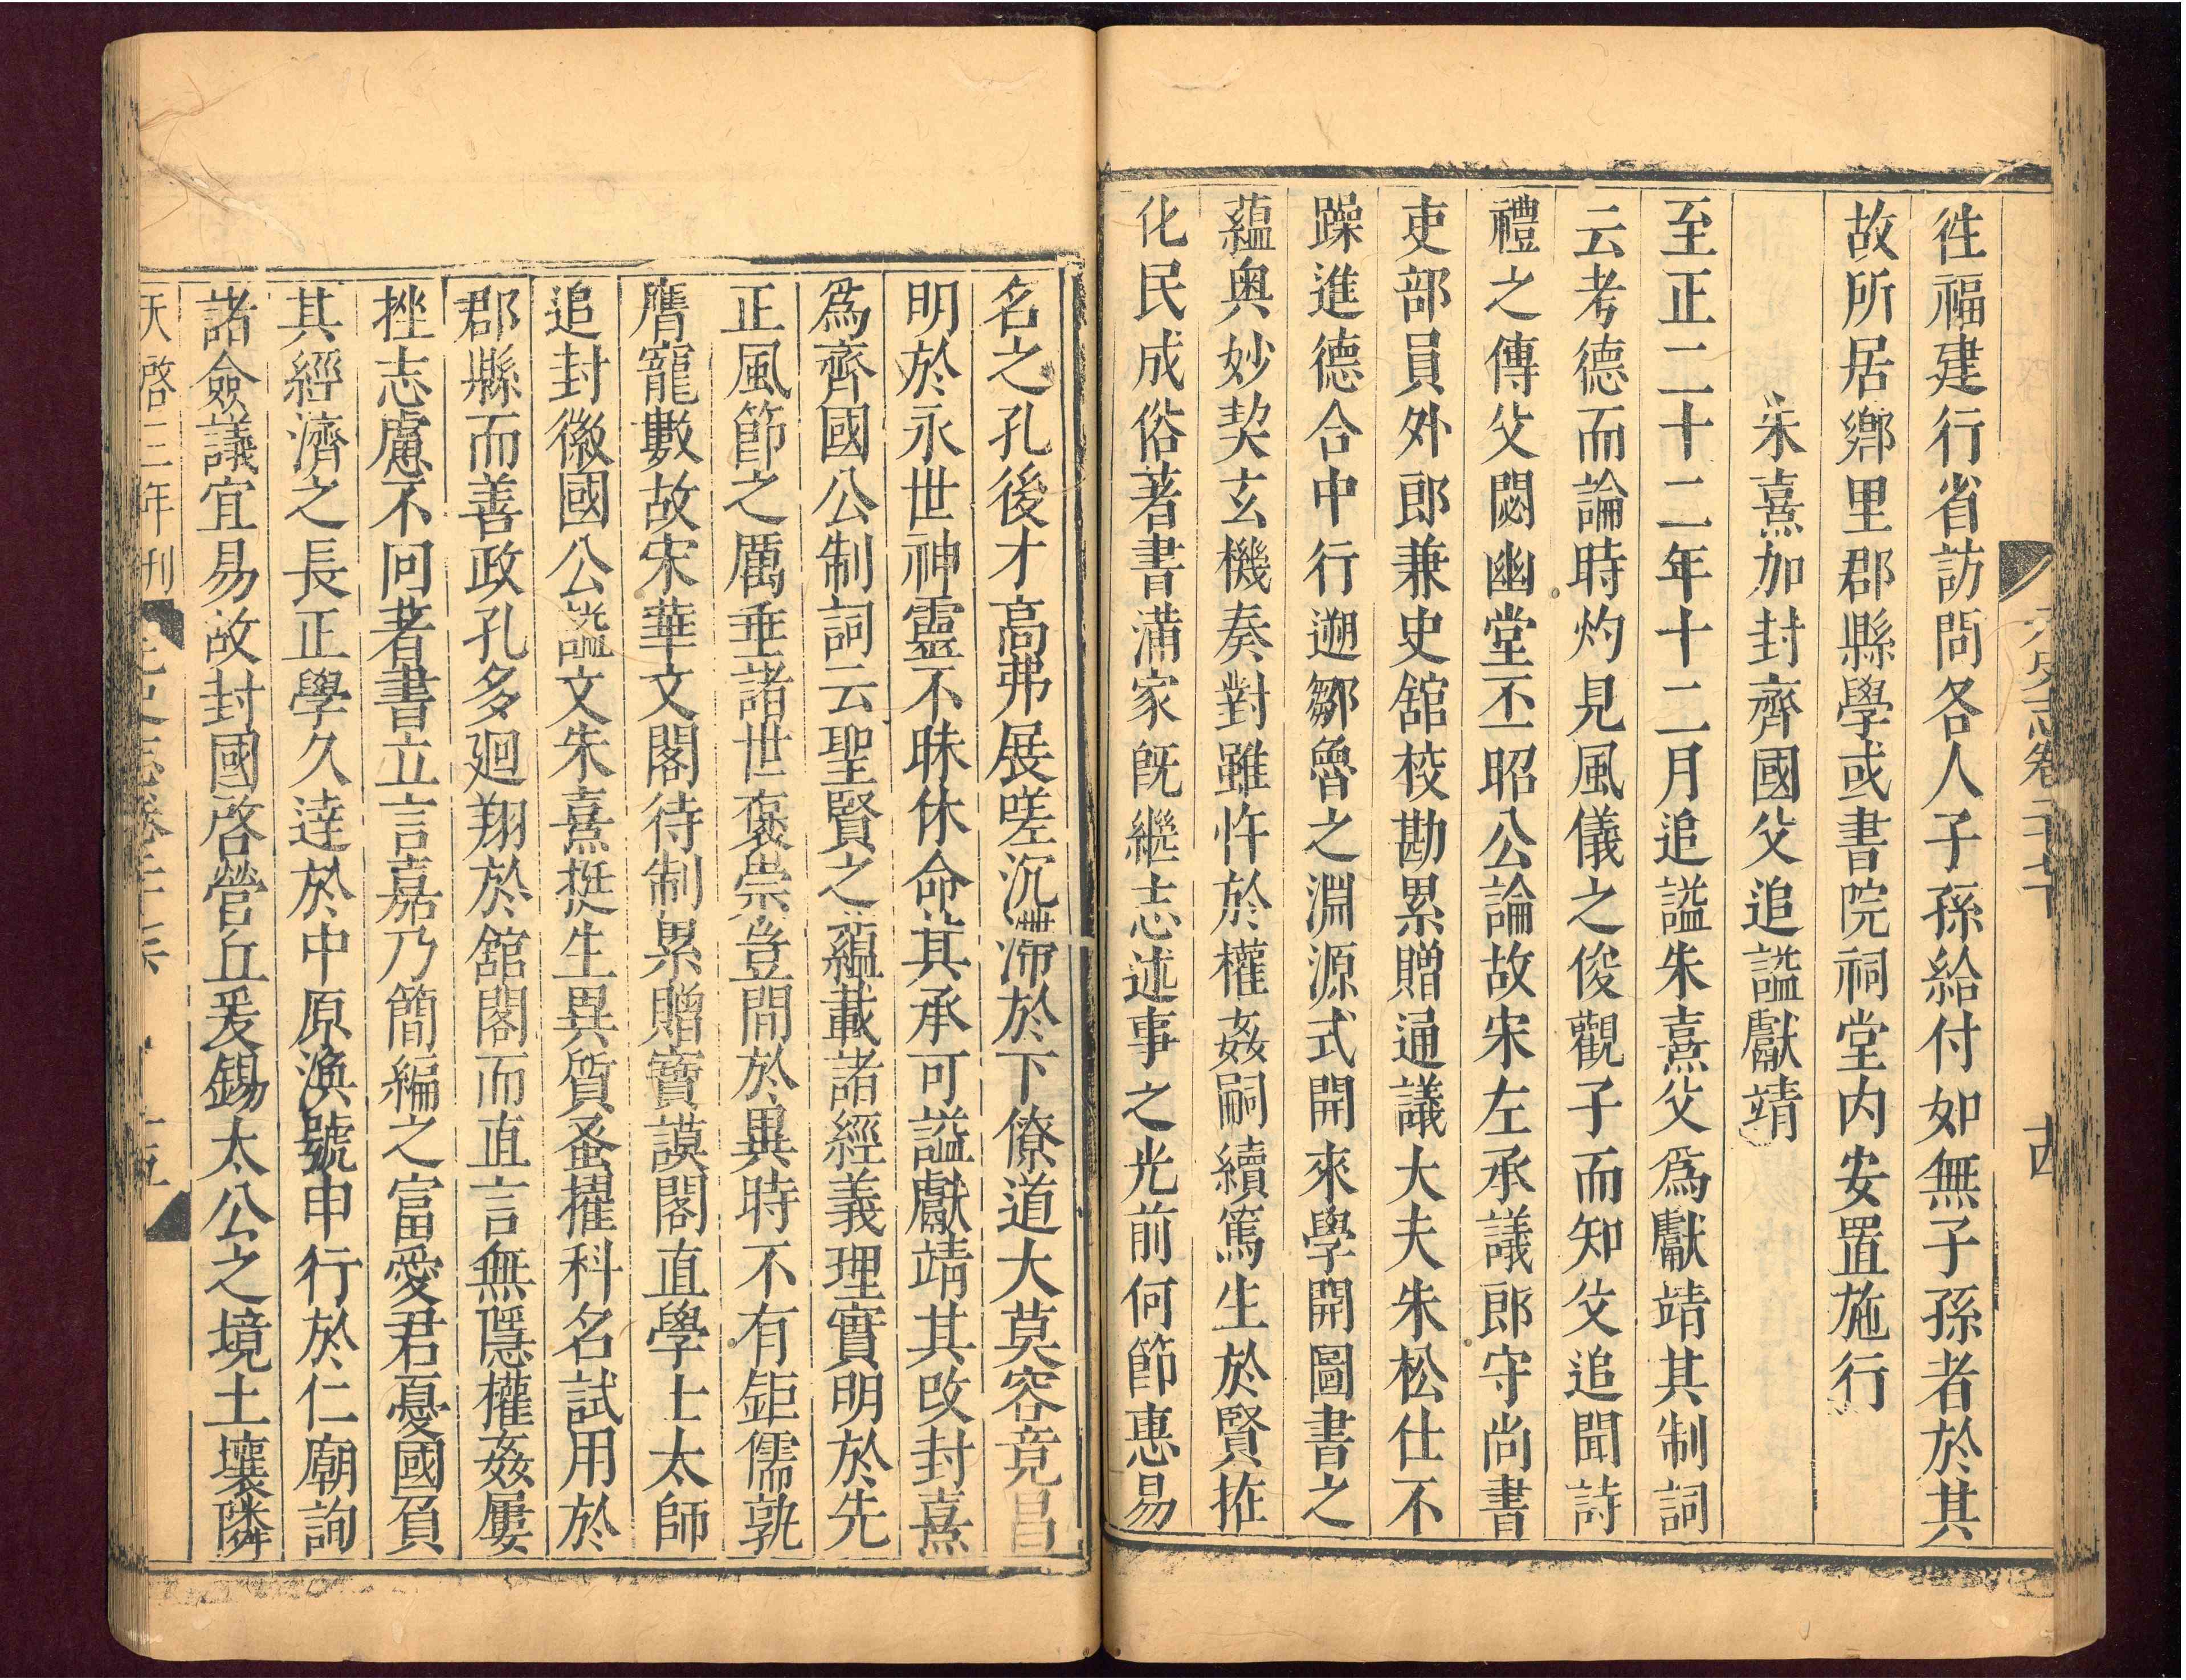 元史志卷二十七 十四
徃福建行省訪問各人子孫給付如無子孫者於其
故所居鄉里郡縣學或書院祠堂内安置施行
朱熹加封齊國父追謚獻靖
至正二十二年十二月追謚朱熹父爲獻靖其制詞
云考德而論時灼見風儀之俊觀子而知父追聞詩
禮之傳父閟幽堂丕昭公論故宋左承議郎守尚書
吏部員外郎兼史舘校勘累贈通議大夫朱松仕不
躁進德合中行遡鄒魯之淵源式開來學開圖書之
蘊奥妙契玄機奏對雖忤於權姦嗣續篤生於賢拞
化民成俗著書滿家旣繼志述事之光前何節惠易
名之孔後才高弗展嗟沉滯於下僚道大莫容竟昌
明於永世神靈不昧休命其承可謚獻靖其改封熹
爲齊國公制詞云聖賢之蘊載諸經義理實明於先
正風節之厲垂諸世褒崇豈間於異時不有鉅儒孰
膺寵數故宋華文閣待制累贈寶謨閣直學士太師
追封徽國公謚文朱熹挺生異質蚤擢科名試用於
郡縣而善政孔多廻翔於舘閣而直言無隱權姦屢
挫志慮不回著書立言嘉乃簡編之富愛君憂國負
其經濟之長正學久逹於中原渙號申行於仁廟詢
諸僉議宜易故封國啓營丘爰錫太公之境土壤隣
天啓三年刊 元史志卷二十七 十五